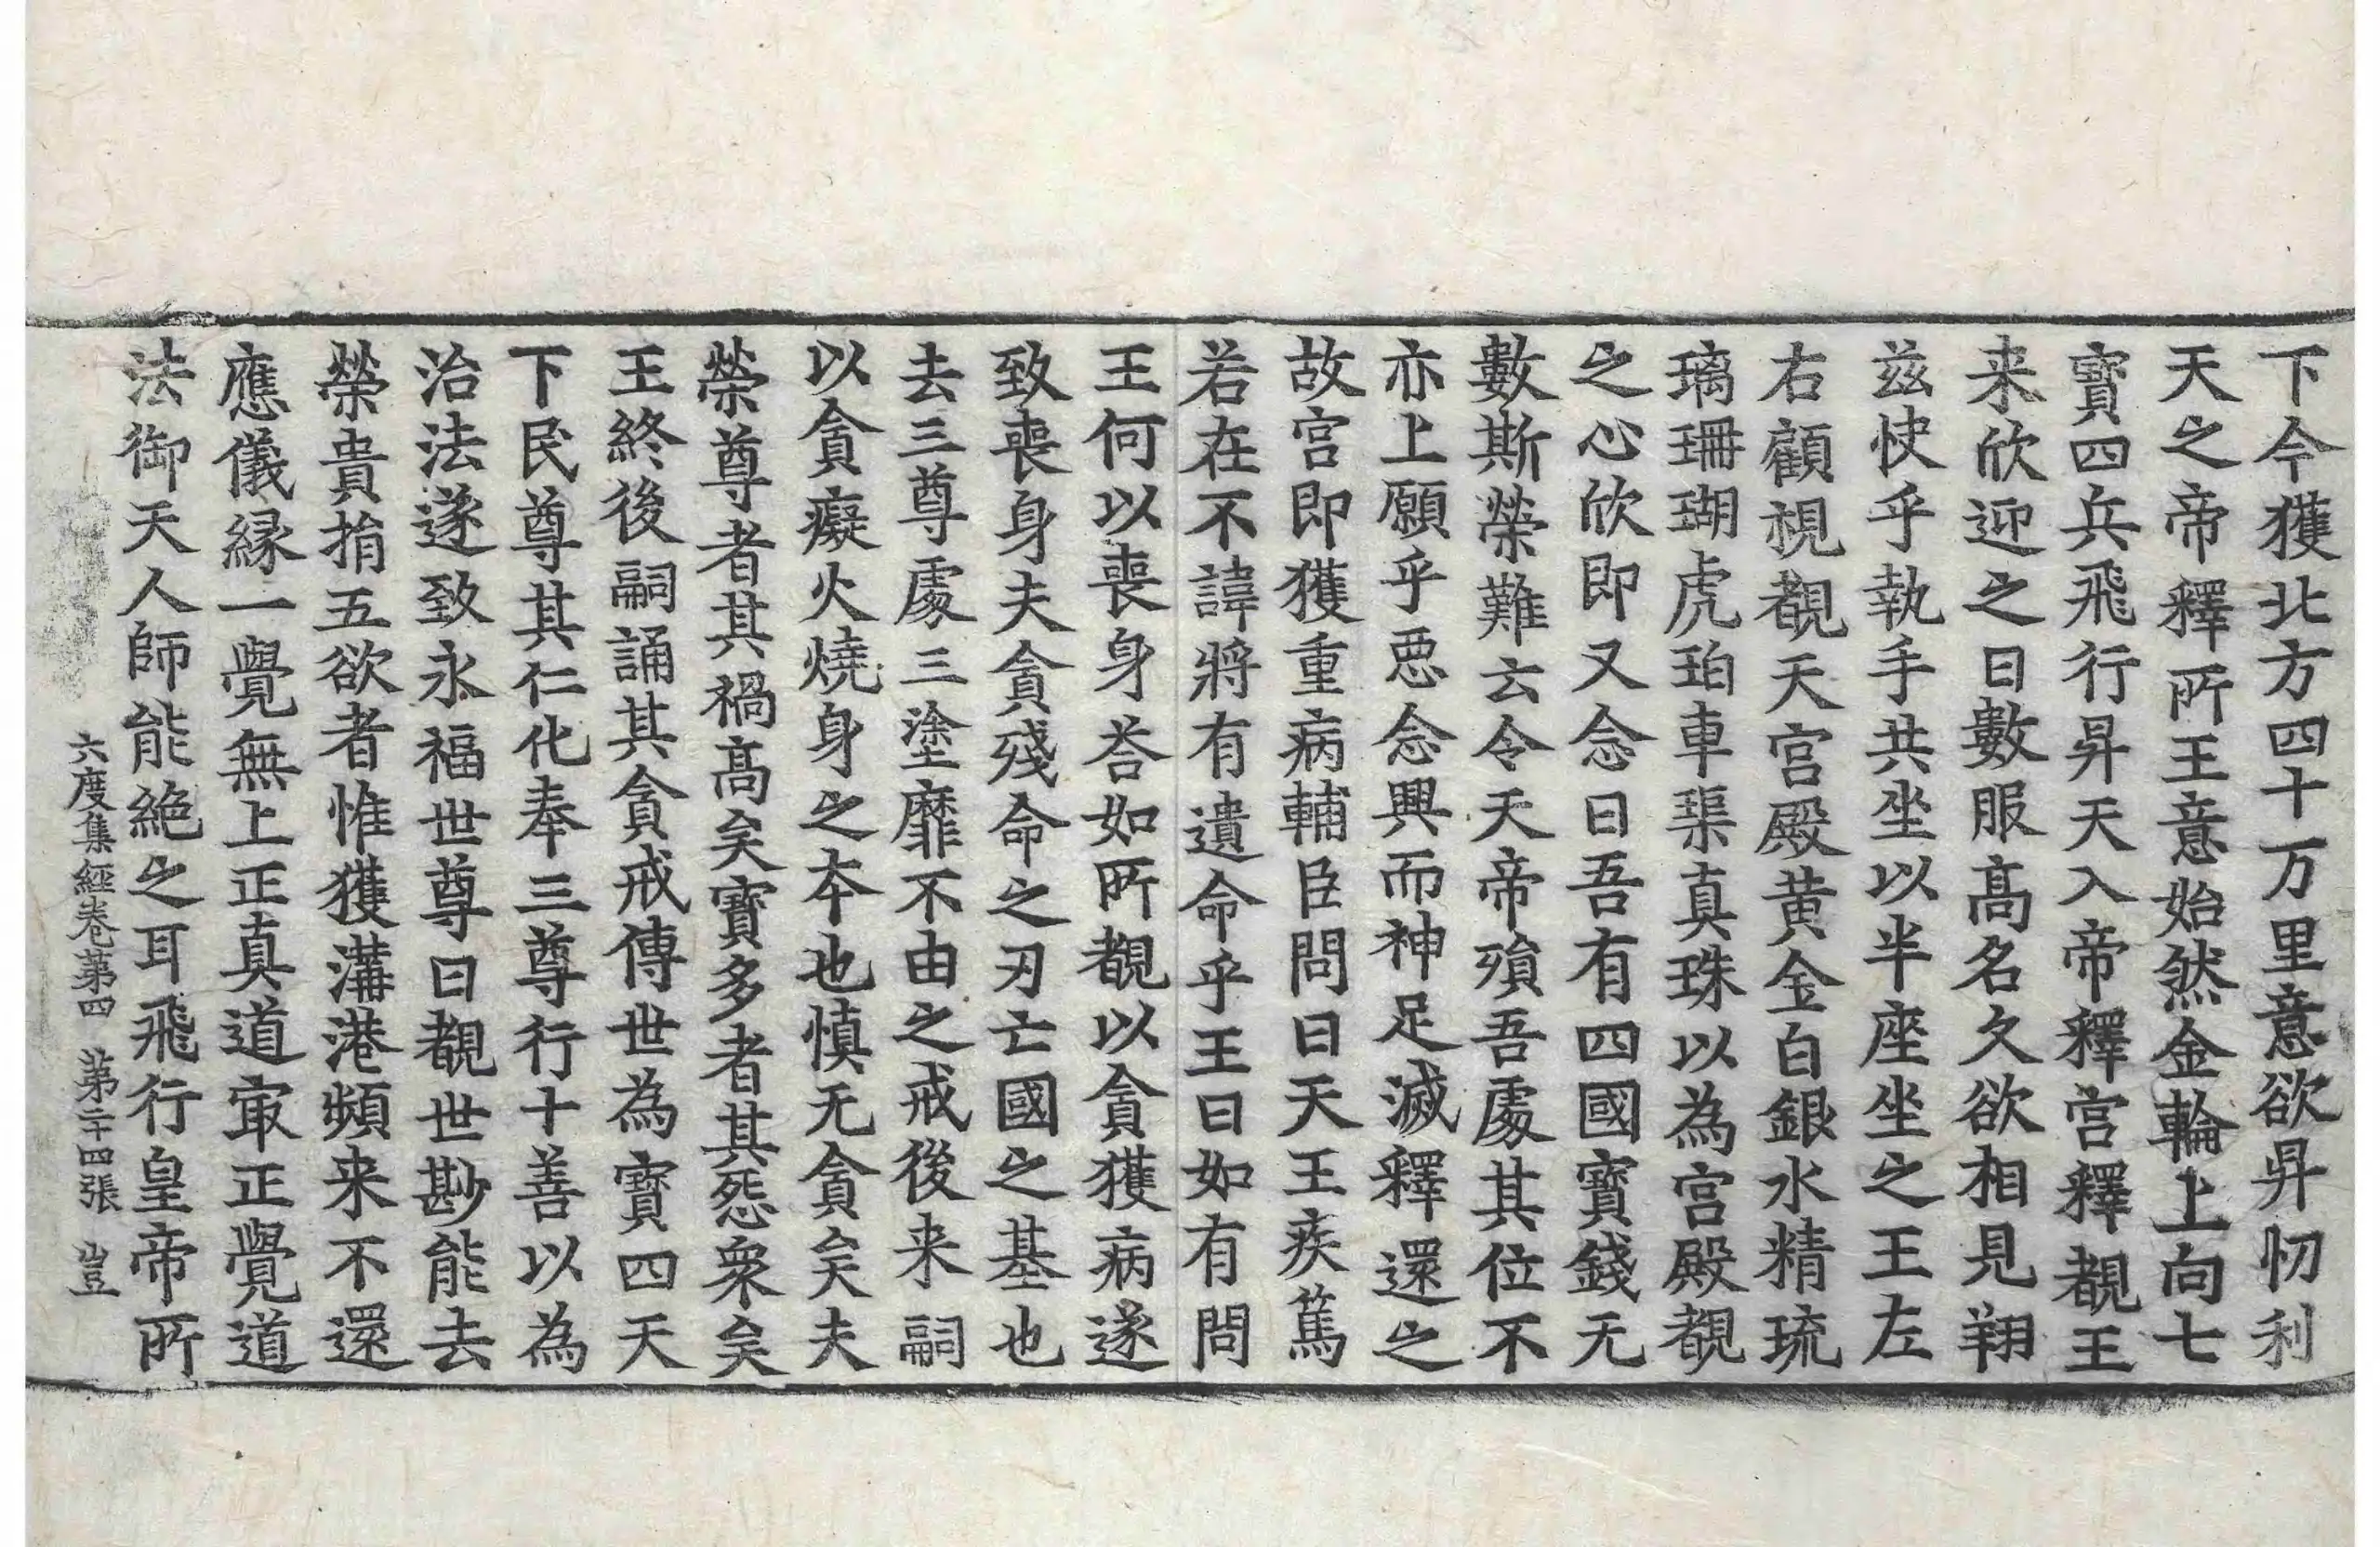 下令獲北方四十万里意欲昇忉利
天之帝釋所王意始然金輪上向七
寶四兵飛行昇天入帝釋宮釋覩王
来欣迎之曰數服髙名久欲相見翔
兹快乎執手共坐以半座坐之王左
右顧視覩天宮殿黄金白銀水精琉
璃珊瑚虎珀車渠真珠以為宮殿覩
之心欣即又念曰吾有四國寶錢无
數斯榮難云令天帝殞吾處其位不
亦上願乎惡念興而神足滅釋還之
故宮即獲重病輔臣問曰天王疾篤
若在不諱將有遺命乎王曰如有問
王何以喪身荅如所覩以貪獲病遂
致喪身夫貪殘命之刃亡國之基也
去三尊處三塗靡不由之戒後来嗣
以貪癡火燒身之本也慎无貪矣夫
榮尊者其禍髙矣寶多者其怨衆矣
王終後嗣誦其貪戒傳世為寶四天
下民尊其仁化奉三尊行十善以為
治法遂致永福世尊曰覩世尠能去
榮貴捐五欲者惟獲溝港頻来不還
應儀縁一覺無上正真道㝡正覺道
法御天人師能絶之耳飛行皇帝所
六度集經卷第四　第二十四張　豈